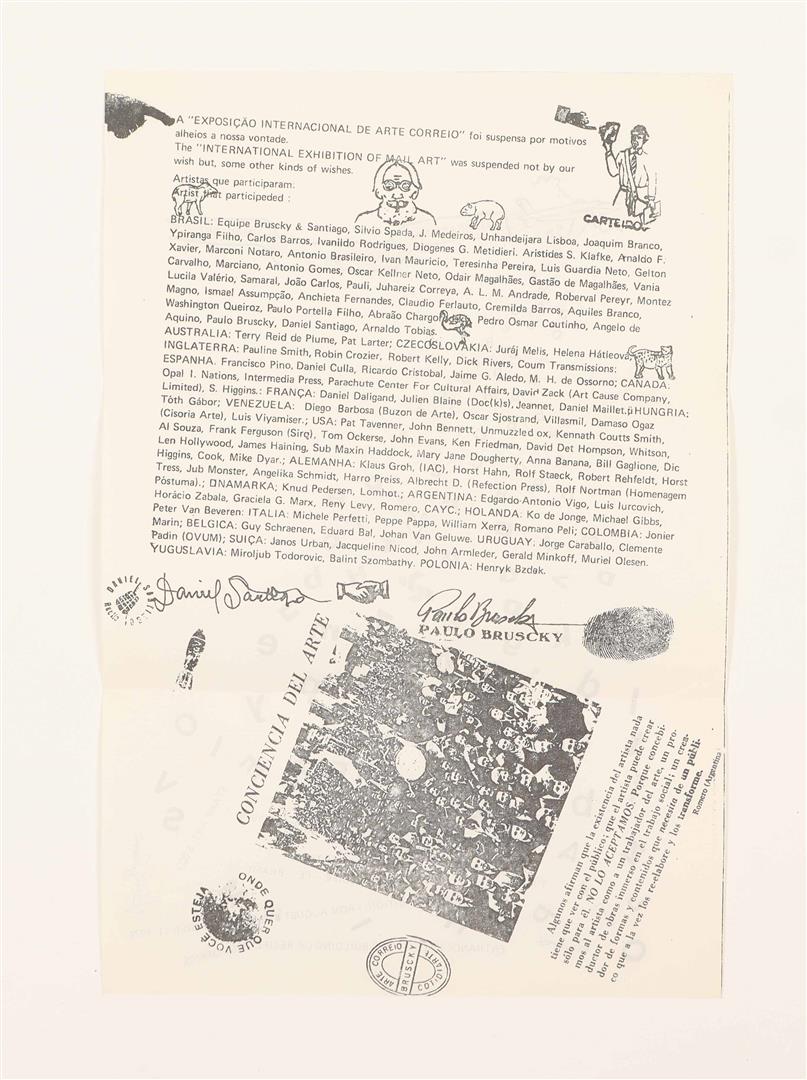 A "EXPOSIÇÃO INTERNACIONAL DE ARTE CORREIO" foi suspensa por motivos
alheios a nossa vontade.
The "INTERNATIONAL EXHIBITION OF MAIL ART" was suspended not by our
wish but, some other kinds of wishes.
Artistas que participaram:
Artist that participeded :
CARTEIRO
BRASIL: Equipe Bruscky & Santiago, Silvio Spada, J. Medeiros, Unhandeijara Lisboa, Joaquim Branco,
Ypiranga Filho, Carlos Barros, Ivanildo Rodrigues, Diogenes G. Metidieri. Aristides S. Klafke, Arnaldo F.
Xavier, Marconi Notaro, Antonio Brasileiro, Ivan Mauricio, Teresinha Pereira, Luis Guardia Neto, Gelton
Carvalho, Marciano, Antonio Gomes, Oscar Kellner Neto, Odair Magalhães, Gastão de Magalhães, Vania
Lucila Valério, Samaral, João Carlos, Pauli, Juhareiz Correya, A. L. M. Andrade, Roberval Pereyr, Montez
Magno, Ismael Assumpção, Anchieta Fernandes, Claudio Ferlauto, Cremilda Barros, Aquiles Branco,
Washington Queiroz, Paulo Portella Filho, Abraão Chargo Pedro Osmar Coutinho, Angelo de
Aquino, Paulo Bruscky, Daniel Santiago, Arnaldo Tobias.
AUSTRALIA: Terry Reid de Plume, Pat Larter; CZECOSLOVAKIA: Juráj Melis, Helena Hátleova
INGLATERRA: Pauline Smith, Robin Crozier, Robert Kelly, Dick Rivers, Coum Transmissions:
ESPANHA. Francisco Pino, Daniel Culla, Ricardo Cristobal, Jaime G. Aledo, M. H. de Ossorno; CANADA:
Opal I. Nations, Intermedia Press, Parachute Center For Cultural Affairs, David Zack (Art Cause Company,
Limited), S. Higgins.: FRANÇA: Daniel Daligand, Julien Blaine (Doc(k)s), Jeannet, Daniel Maillet. HUNGRIA:
Tóth Gábor; VENEZUELA: Diego Barbosa (Buzon de Arte), Oscar Sjostrand, Villasmil, Damaso Ogaz
(Cisoria Arte), Luis Viyamiser.; USA: Pat Tavenner, John Bennett, Unmuzzled ox, Kennath Coutts Smith,
Al Souza, Frank Ferguson (Sirq), Tom Ockerse, John Evans, Ken Friedman, David Det Hompson, Whitson,
Len Hollywood, James Haining, Sub Maxin Haddock, Mary Jane Dougherty, Anna Banana, Bill Gaglione, Dic
Higgins, Cook, Mike Dyar.; ALEMANHA: Klaus Groh, (IAC), Horst Hahn, Rolf Staeck, Robert Rehfeldt, Horst
Tress, Jub Monster, Angelika Schmidt, Harro Preiss, Albrecht D. (Refection Press), Rolf Nortman (Homenagem
Póstuma).; DNAMARKA; Knud Pedersen, Lomhot.; ARGENTINA: Edgardo-Antonio Vigo, Luis Iurcovich,
Horácio Zabala, Graciela G. Marx, Reny Levy, Romero, CAYC.; HOLANDA: Ko de Jonge, Michael Gibbs,
Peter Van Beveren: ITALIA: Michele Perfetti, Peppe Pappa, William Xerra, Romano Peli; COLOMBIA: Jonier
Marin; BELGICA: Guy Schraenen, Eduard Bal, Johan Van Geluwe. URUGUAY: Jorge Caraballo, Clemente
Padin (OVUM); SUIÇA: Janos Urban, Jacqueline Nicod, John Armleder, Gerald Minkoff, Muriel Olesen.
YUGUSLAVIA: Miroljub Todorovic, Balint Szombathy. POLONIA: Henryk Bzdak.
Daniel Santiago
Paulo Bruscky
PAULO BRUSCKY
CONCIENCIA DEL ARTE
Algunos afirman que la existencia del artista nada
tiene que ver con el público; que el artista puede crear
sólo para él. NO LO ACEPTAMOS. Porque concebi-
mos al artista como a un trabajador del arte, un pro-
ductor de obras inmerso en el trabajo social; un crea-
dor de formas y contenidos que necesita de un públi-
co que a la vez los re-elabore y los transforme.
Romero (Argentina
ONDE QUER QUE VOCÊ ESTEJA
ARTE CORREIO
BRUSCKY